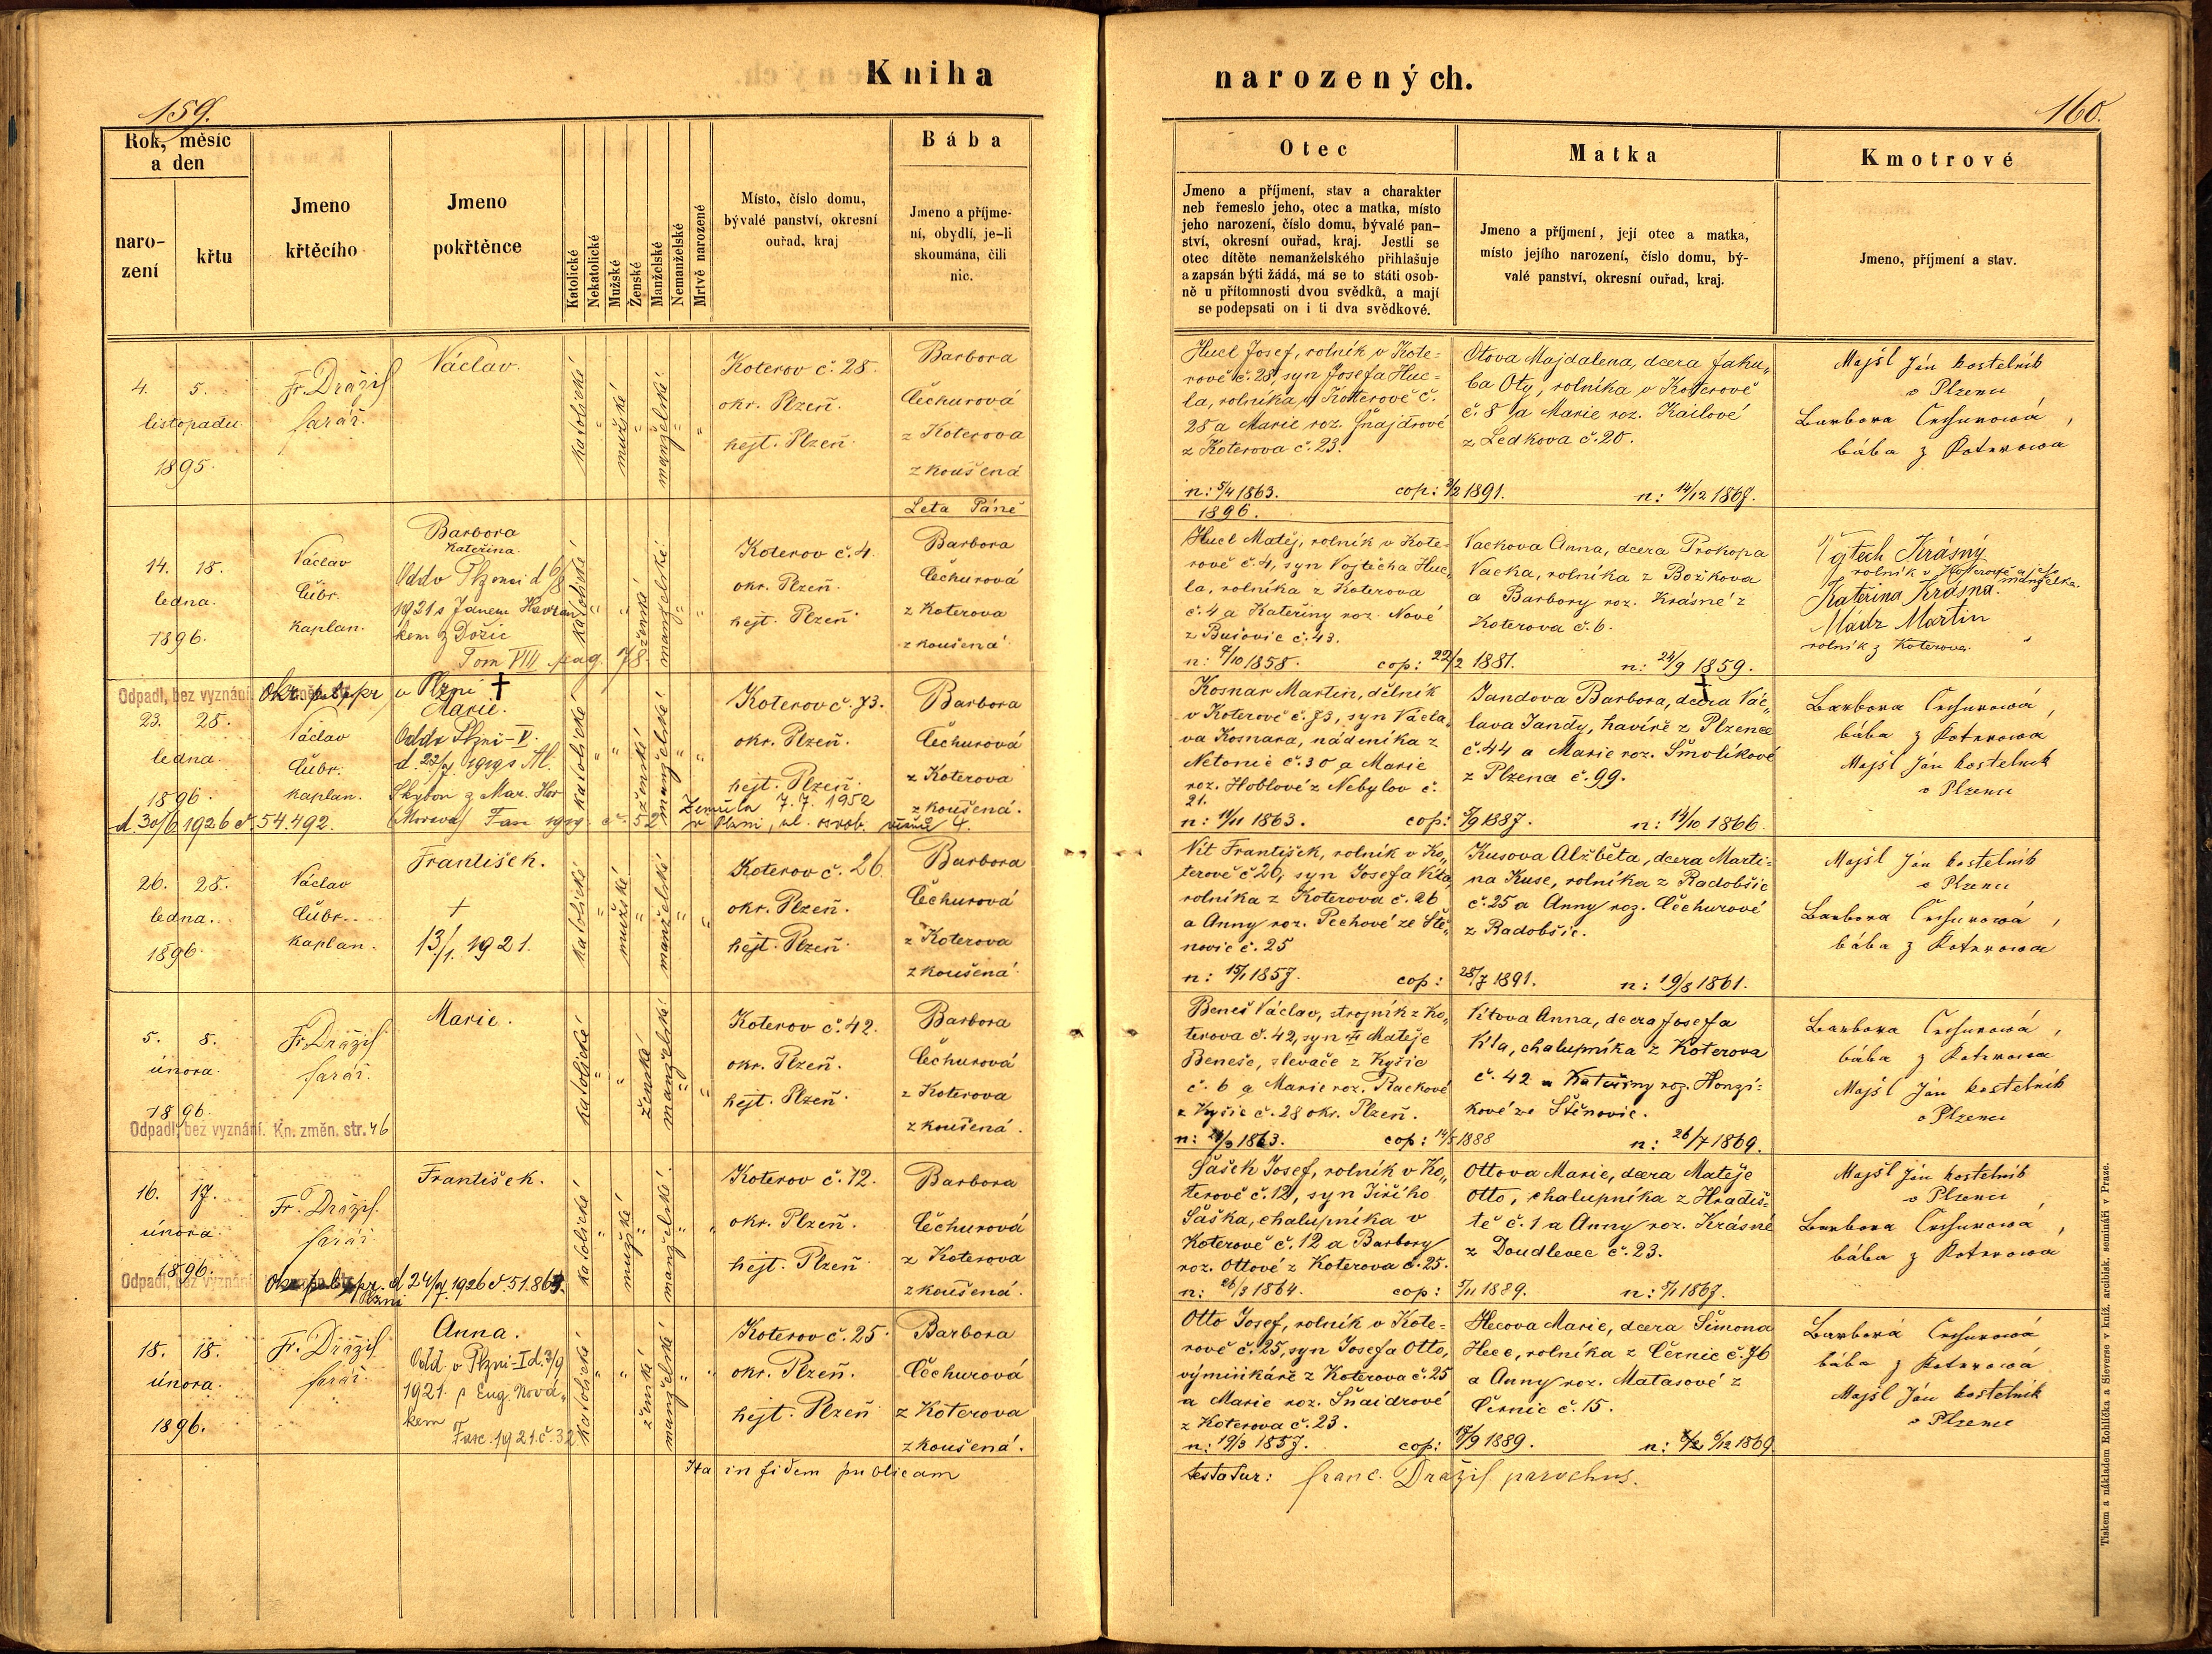 Kniha
narozených.
159.
160.
Rok, měsíc
a den
naro-
zení
křtu
Jmeno
křtěcího
Jmeno
pokřtěnce
Katolické
Nekatolické
Mužské
Ženské
Manželské
Nemanželské
Mrtvě narozené
Místo, číslo domu,
bývalé panství, okresní
ouřad, kraj
Bába
Jmeno a příjme-
ní, obydlí, je-li
skoumána, čili
nic.
Otec
Jmeno a příjmení, stav a charakter
neb řemeslo jeho, otec a matka, místo
jeho narození, číslo domu, bývalé pan-
ství, okresní ouřad, kraj. Jestli se
otec dítěte nemanželského přihlašuje
a zapsán býti žádá, má se to státi osob-
ně u přítomnosti dvou svědků, a mají
se podepsati on i ti dva svědkové.
Matka
Jmeno a příjmení, její otec a matka,
místo jejího narození, číslo domu, bý-
valé panství, okresní ouřad, kraj.
Kmotrové
Jmeno, příjmení a stav.
4. 5.
listopadu
1895.
Fr. Drážil
farář.
Václav.
katolické
mužské
manželské
Koterov č. 28.
okr. Plzeň.
hejt. Plzeň.
Barbora
Čechurová
z Koterova
zkoušená
Hucl Josef, rolník v Kote-
rově č. 28, syn Josefa Huc-
la, rolníka v Koterově č.
28 a Marie roz. Šnajdrové
z Koterova č. 23.
n: 5/4 1863. cop: 3/2 1891.
Otova Majdalena, dcera Jaku-
ba Oty, rolníka v Koterově
č. 8 a Marie roz. Kailové
z Ledkova č. 20.
n: 14/12 1867.
Majšl Ján kostelník
v Plzenci
Barbora Čechurowá,
bába z Koterowa
Leta Páně
1896.
14. 15.
ledna.
1896.
Václav
Čubr.
kaplan.
Barbora
Kateřina.
Odd v Plzenci d 6/8
1921 s Janem Havran
kem z Dožic
Tom VIII pag. 78.
katolické
ženské
manželské
Koterov č. 4.
okr. Plzeň.
hejt. Plzeň.
Barbora
Čechurová
z Koterova
zkoušená
Hucl Matěj, rolník v Kote-
rově č. 4, syn Vojtěcha Huc-
la, rolníka z Koterova
č. 4 a Kateřiny roz. Nové
z Bušovic č. 43.
n: 9/10 1858. cop: 22/2 1881.
Vackova Anna, dcera Prokopa
Vacka, rolníka z Božkova
a Barbory roz. Krásné z
Koterova č. 6.
n: 24/9 1859.
Vojtěch Krásný
rolník v Koterově a jeho
manželka.
Kateřina Krásná.
Mádr Martin
rolník z Koterova.
Odpadl, bez vyznání
v Plzni
23. 25.
ledna
1896.
d. 30/6 1926 č. 54.492.
Václav
Čubr.
kaplan.
Marie.
Odd v Plzni-V.
d. 22/4 1919 s Al.
z Mar. Hor
(Morava) Fasc 1919. č. 52
katolické
ženské
manželské
Koterov č. 73.
okr. Plzeň.
hejt. Plzeň.
Zemřela 7. 7. 1952
v Plzni,
Barbora
Čechurová
z Koterova
zkoušená.
Kosnar Martin, dělník
v Koterově č. 73, syn Václa-
va Kosnara, nádeníka z
Netonic č. 30 a Marie
roz. Hoblové z Nebylov č.
21.
n: 11/11 1863. cop: 5/9 1887.
Jandova Barbora, dcera Vác-
lava Jandy, havíře z Plzence
č. 44 a Marie roz. Smolíkové
z Plzence č. 99.
n: 14/10 1866.
Barbora Čechurowá,
bába z Koterowa
Majšl Ján kostelník
v Plzenci
26. 28.
ledna.
1896.
Václav
Čubr.
kaplan.
František.
†
13/1. 1921.
katolické
mužské
manželské
Koterov č. 26.
okr. Plzeň.
hejt. Plzeň.
Barbora
Čechurová
z Koterova
zkoušená
Vít František, rolník v Ko-
terově č. 26, syn Josefa Víta,
rolníka z Koterova č. 26
a Anny roz. Pechové ze Ště-
novic č. 25
n: 15/1 1857. cop: 28/7 1891.
Kusova Alžběta, dcera Marti-
na Kuse, rolníka z Radobšic
č. 25 a Anny roz. Čechurové
z Radobšic.
n: 19/8 1861.
Majšl Ján kostelník
v Plzenci
Barbora Čechurowá,
bába z Koterowa
5. 8.
února.
1896.
Odpadl, bez vyznání. Kn. změn. str. 46
Fr. Drážil
farář.
Marie.
katolické
ženské
manželské
Koterov č. 42.
okr. Plzeň.
hejt. Plzeň.
Barbora
Čechurová
z Koterova
zkoušená.
Beneš Václav, strojník z Ko-
terova č. 42, syn † Matěje
Beneše, slevače z Kyšic
č. 6 a Marie roz. Rackové
z Kyšic č. 28 okr. Plzeň.
cop: 14/5 1888
Vítova Anna, dcera Josefa
Víta, chalupníka z Koterova
č. 42 a Kateřiny roz. Honzí-
kové ze Štěnovic.
n: 26/7 1869.
Barbora Čechurowá,
bába z Koterowa
Majšl Ján kostelník
v Plzenci
16. 17.
února.
1896.
Odpadl, bez vyznání
d 24/7 1926 č 51.865.
Plzni
Fr. Drážil.
farář.
František.
katolické
mužské
manželské
Koterov č. 12.
okr. Plzeň.
hejt. Plzeň
Barbora
Čechurová
z Koterova
zkoušená.
Šašek Josef, rolník v Ko-
terově č. 12, syn Jiřího
Šaška, chalupníka v
Koterově č. 12 a Barbory
roz. Ottové z Koterova č. 25.
n: 26/3 1864. cop: 5/11 1889.
Ottova Marie, dcera Matěje
Otto, chalupníka z Hradiš-
tě č. 1 a Anny roz. Krásné
z Doudlevec č. 23.
n: 5/1 1867.
Majšl Ján kostelník
v Plzenci
Barbora Čechurowá,
bába z Koterowá
15. 18.
února.
1896.
Fr. Drážil
farář.
Anna.
Odd. v Plzni-I d. 3/9
1921. s Eug. Nová-
kem
Fasc. 1921. č. 32
katolické
ženské
manželské
Koterov č. 25.
okr. Plzeň.
hejt. Plzeň
Barbora
Čechurová
z Koterova
zkoušená.
Otto Josef, rolník v Kote-
rově č. 25, syn Josefa Otto,
výminkáře z Koterova č. 25
a Marie roz. Šnaidrové
z Koterova č. 23.
n: 19/3 1857. cop: 17/9 1889.
Hecova Marie, dcera Šimona
Hece, rolníka z Černic č. 76
a Anny roz. Matasové z
Černic č. 15.
n: 6/12 1869
Barborá Čechurowá
bába z Koterowá
Majšl Ján kostelník
v Plzenci
Ita in fidem publicam
testatur: Franc. Drážil parochus.
Tiskem a nákladem Rohlíčka a Sieverse v kníž. arcibisk. semináři v Praze.